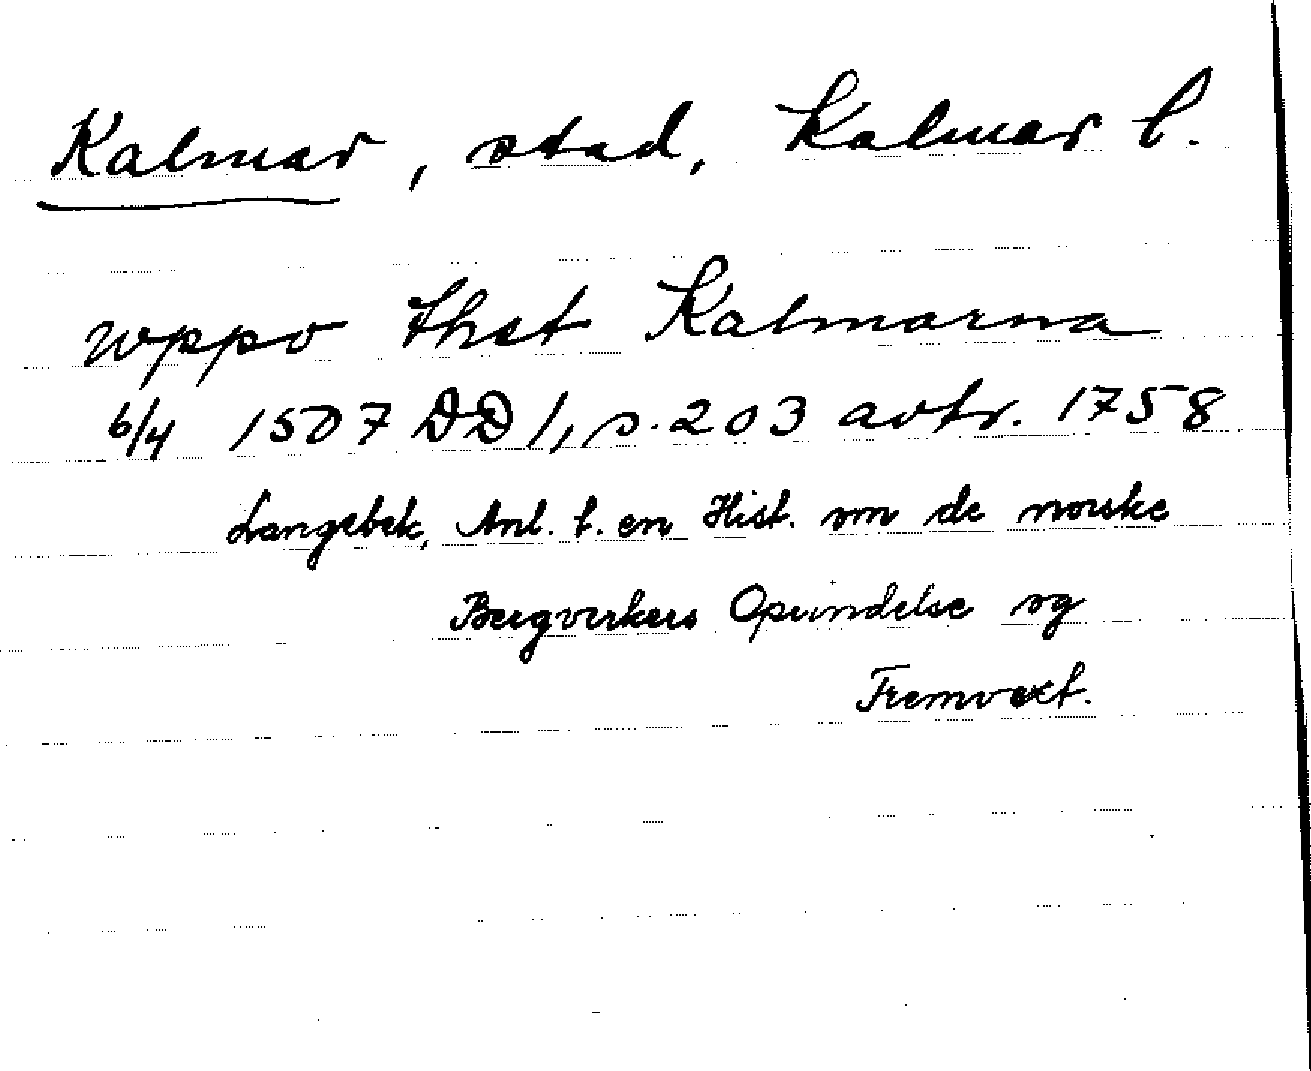 Kalmar, stad, Kalmar l.
wppo thet Kalmarna
6/4 1507 DD 1, s. 203 avtr. 1758
Langebek, Anl. t. en Hist. om de norske
Bergverkers Oprindelse og
Fremvext.